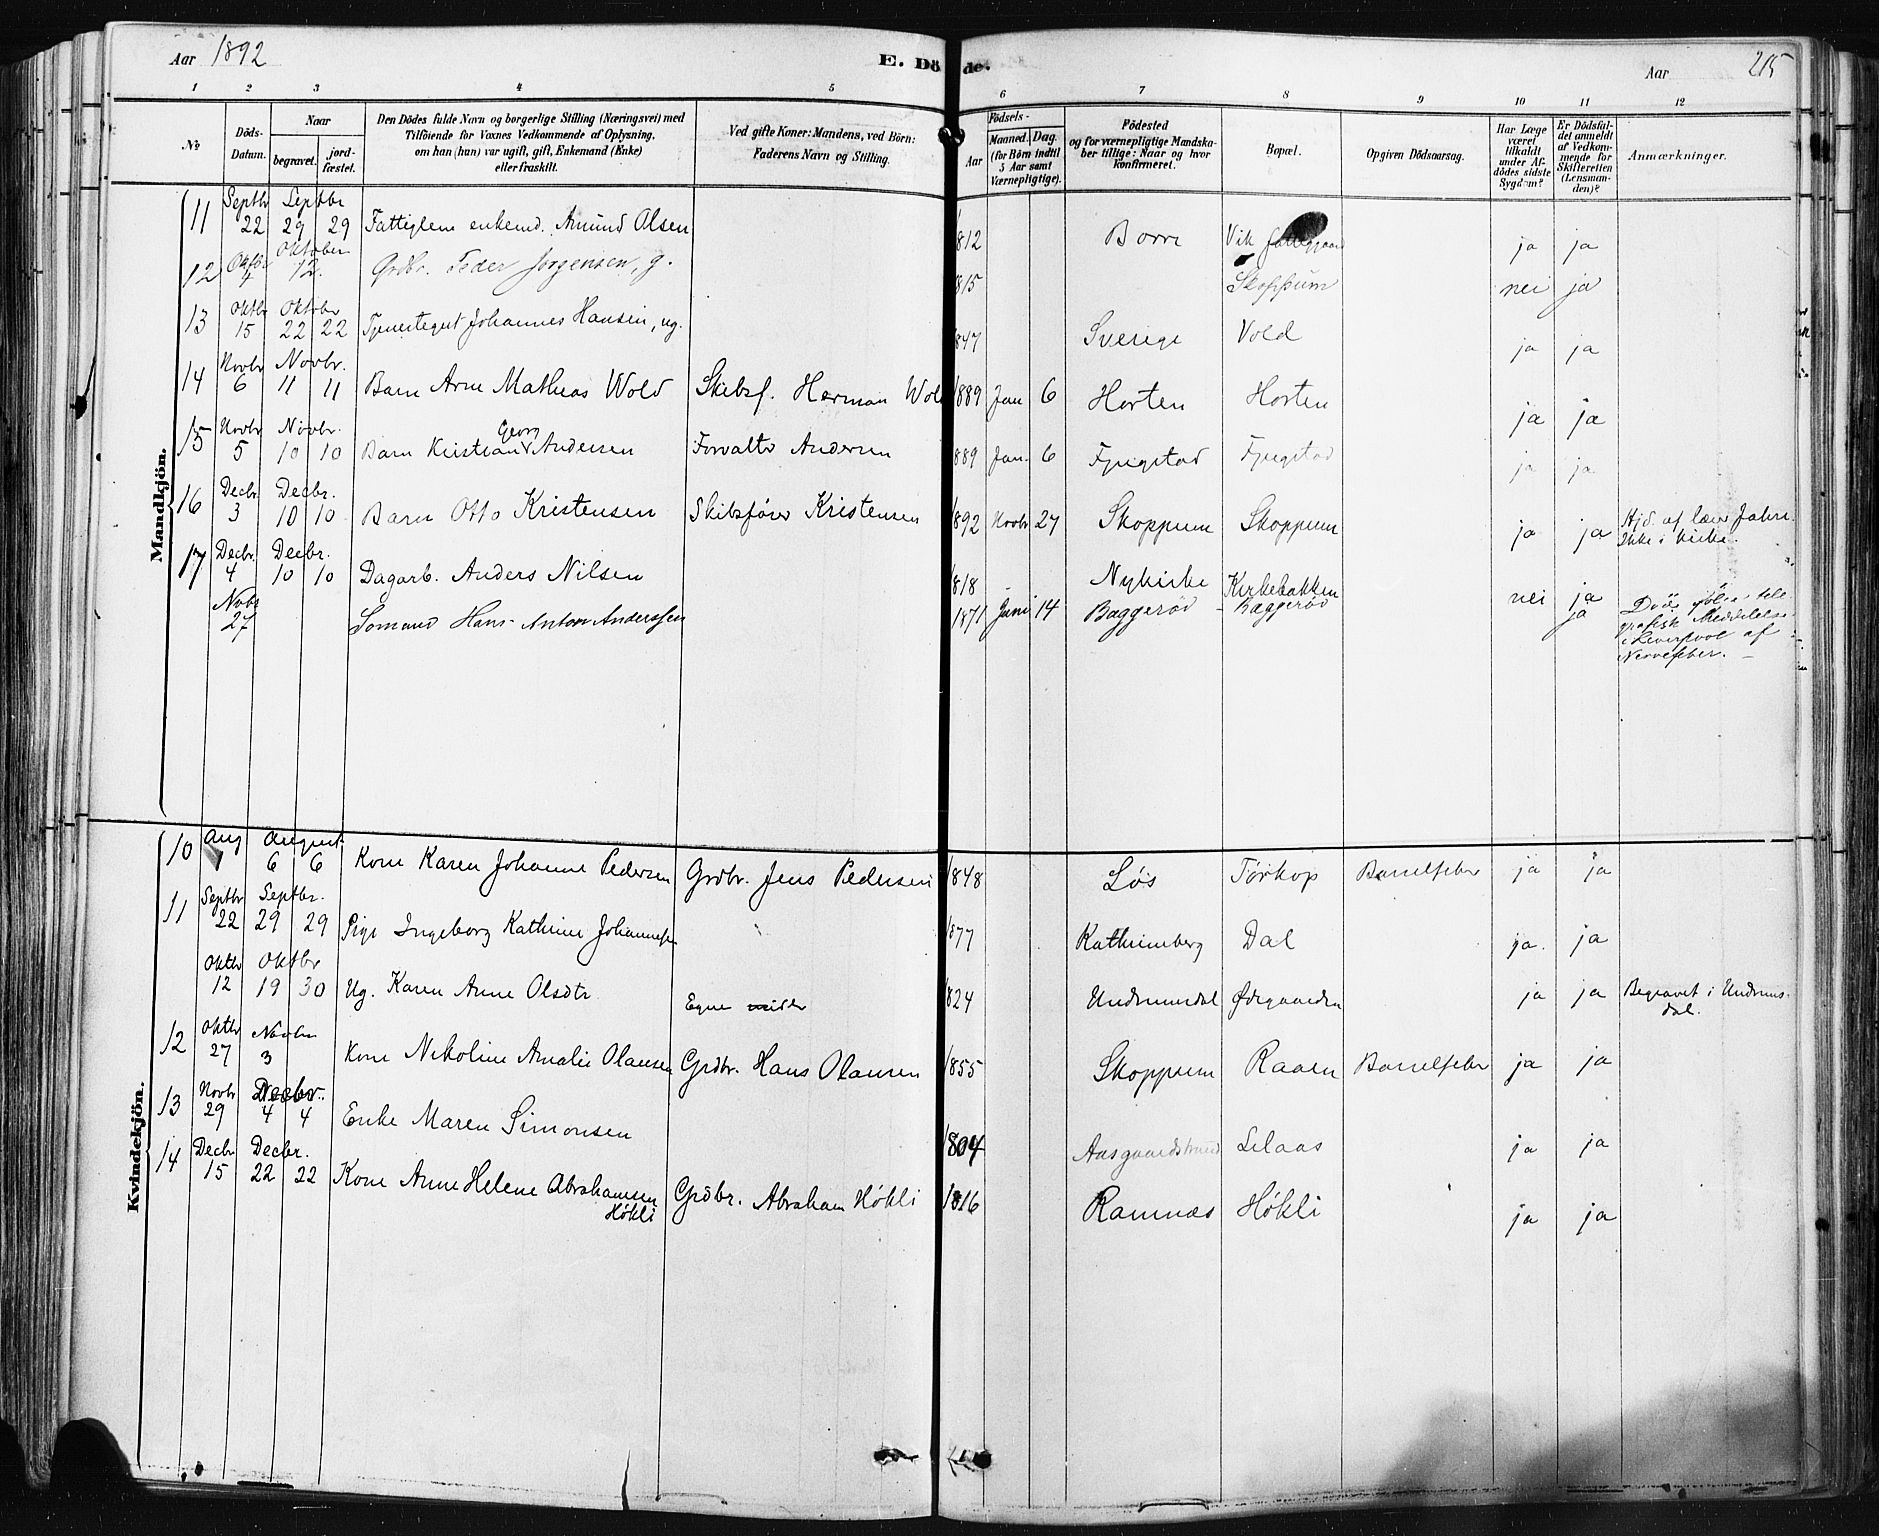 Aar 1892
E. Dö de.
Aar
215
1 2 3 4 5 6 7 8 9 10 11 12
No
Döds-Datum.
Naar
begravet. jord-fæstet.
Den Dödes fulde Navn og borgerlige Stilling (Næringsvei) med
Tilföiende for Voxnes Vedkommende af Oplysning,
om han (hun) var ugift, gift, Enkemand (Enke)
eller fraskilt.
Ved gifte Koner: Mandens, ved Börn:
Faderens Navn og Stilling.
Födsels-
Aar Maaned. Dag.
(for Börn indtil
5 Aar samt
Værnepligtige).
Födested
og for værnepligtige Mandska-
ber tillige: Naar og hvor
konfirmeret.
Bopæl.
Opgiven Dödsaarsag.
Har Læge
været
tilkaldt
under Af-
dödes sidste
Sygdom?
Er Dödsfal-
det anmeldt
af Vedkom-
mende for
Skifteretten
(Lensman-
den)?
Anmærkninger.
Mandkjön.
11 Septbr 22 Septbr 29 29 Fattiglem enkemd. Amund Olsen 1812 Borre Vik ja ja
12 Oktbr 4 Oktober 12. Grdbr. Peder Jorgensen, g. 1815 Skoppum nei ja
13 Oktbr 15 Oktober 22 22 Tjenestegut Johannes Hansen, ug. 1847 Sverige Vold ja ja
14 Novbr 6 Novbr. 11 11 Barn Arne Mathias Wold Skibsf. Herman Wold 1889 Jan 6 Horten Horten ja ja
15 Novbr 5 Novbr. 10 10 Barn Kristian Georg Andersen Forvalter Andersen 1889 Jan. 6 Fyrigstad Fyrigstad ja ja
16 Decbr 3 Decbr. 10 10 Barn Otto Kristensen Skibsfører Kristensen 1892 Novbr 27 Skoppum Skoppum ja ja Hjd. af lærer Jahre.
Ikke i kirke.
17 Decbr. 4 Decbr. 10 10 Dagarb. Anders Nilsen 1818 Nykirke Kirkebakken nei ja
Novbr 27 Sømand Hans Anton Anderssen 1871 Juni 14 Baggerød Baggerød ja Død ifølge tele
grafisk Meddelelse
i Liverpool af
Nervefeber.
Kvindekjön.
10 Aug August 6 6 Kone Karen Johanne Pedersen Grdbr. Jens Pedersen 1848 Løs Tørkop Barselfeber ja ja
11 Septbr 22 Septbr. 29 29 Pige Ingeborg Kathrine Johannessen 1877 Kathrineberg Dal ja. ja
Oktbr 12 Oktbr 19 30 Ug. Karen Anne Olsdtr Egne midler 1824 Undrumsdal Ødegaarden ja ja Begravet i Undrums-
dal.
12 Oktbr 27 Novbr 3 Kone Nikoline Amalie Olausen Grdbr. Hans Olausen 1855 Skoppum Raaen Barselfeber ja ja
13 Novbr 29 Decbr. 4 4 Enke Maren Simonsen 1804 Aasgaardstrand Lilaas ja ja
14 Decbr 15 Decbr. 22 22 Kone Anne Helene Abrahamsen
Høkli Grdbr. Abraham Høkli 1816 Ramnæs Høkli ja ja